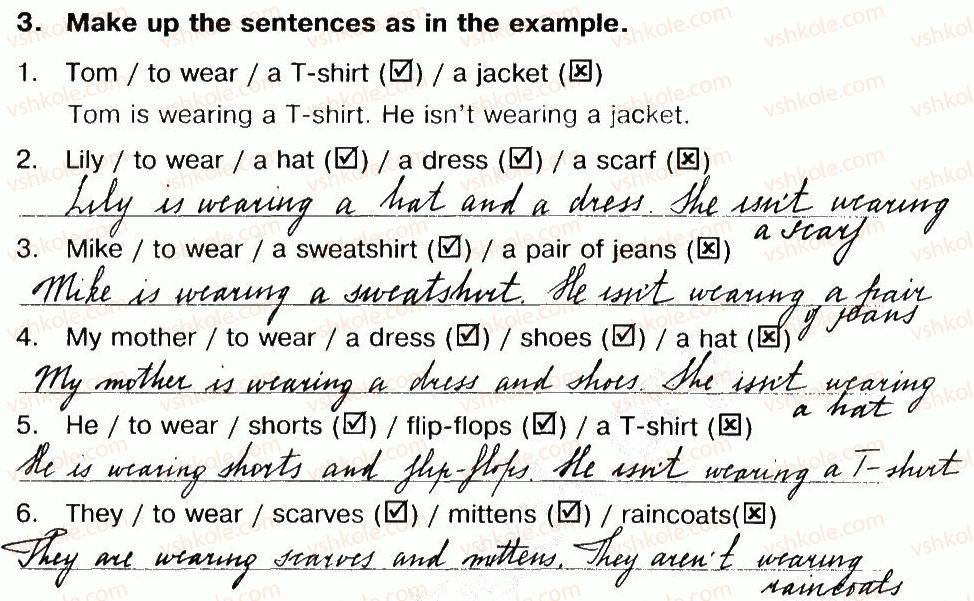 3. Make up the sentences as in the example.
1. Tom / to wear / a T-shirt (☑) / a jacket (☒)
Tom is wearing a T-shirt. He isn't wearing a jacket.
2. Lily / to wear / a hat (☑) / a dress (☑) / a scarf (☒)
Lily is wearing a hat and a dress. She isn't wearing
a scarf
3. Mike / to wear / a sweatshirt (☑) / a pair of jeans (☒)
Mike is wearing a sweatshirt. He isn't wearing a pair
of jeans
4. My mother / to wear / a dress (☑) / shoes (☑) / a hat (☒)
My mother is wearing a dress and shoes. She isn't wearing
a hat
5. He / to wear / shorts (☑) / flip-flops (☑) / a T-shirt (☒)
He is wearing shorts and flip-flops. He isn't wearing a T-shirt
6. They / to wear / scarves (☑) / mittens (☑) / raincoats(☒)
They are wearing scarves and mittens. They aren't wearing
raincoats
vshkole.com